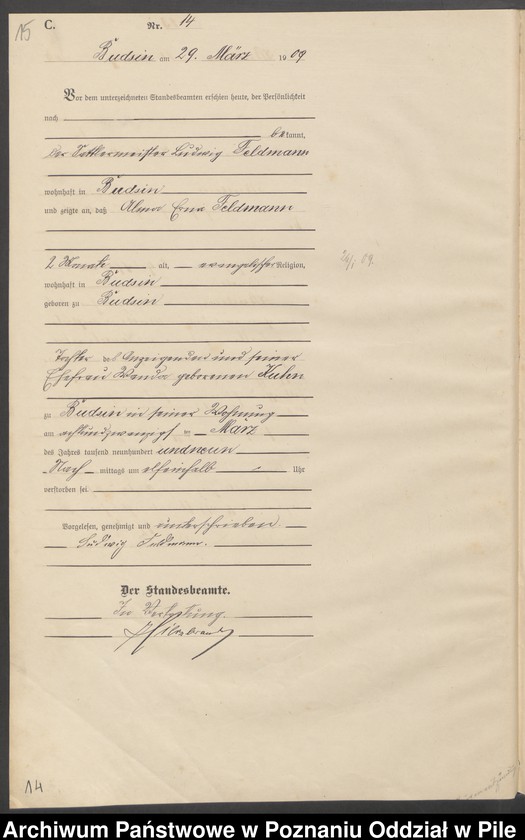 15 C. Nr. 14
Budsin am 29. März 1909
Vor dem unterzeichneten Standesbeamten erschien heute, der Persönlichkeit
nach
bekannt,
der Sattlermeister Ludwig Feldmann
wohnhaft in Budsin
und zeigte an, daß Alma Erna Feldmann
2 Monate alt, evangelischer Religion,
wohnhaft in Budsin
geboren zu Budsin
Tochter des Anzeigenden und seiner
Ehefrau Wanda geborenen Kuhn
zu Budsin in seiner Wohnung
am achtundzwanzigsten März
des Jahres tausend neunhundert undneun
Nachmittags um elfeinhalb Uhr
verstorben sei
Vorgelesen, genehmigt und unterschrieben
Ludwig Feldmann.
Der Standesbeamte.
In Vertretung.
14
Archiwum Państwowe w Poznaniu Oddział w Pile